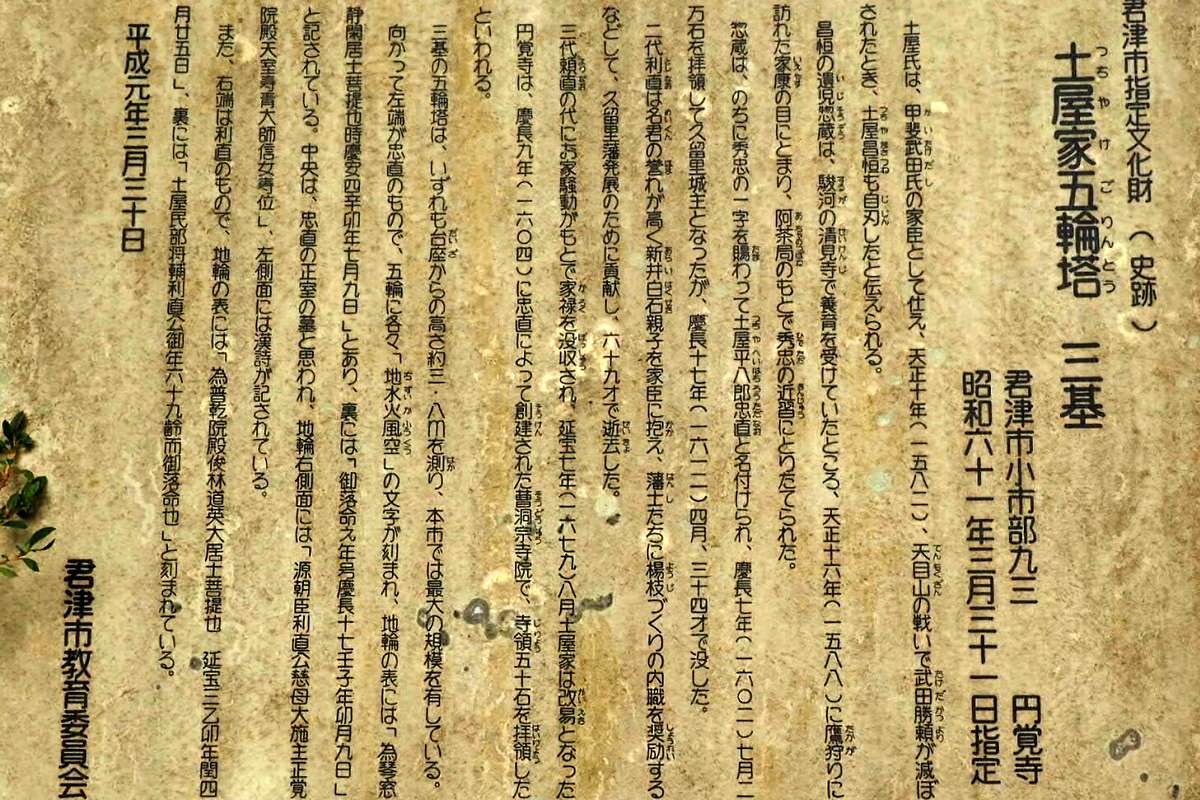 君津市指定文化財（史跡）
土屋家五輪塔 三基
君津市小市部九三 円覚寺
昭和六十一年三月三十一日指定
土屋氏は、甲斐武田氏の家臣として仕え、天正十年（一五八二）、天目山の戦いで武田勝頼が滅ぼ
されたとき、土屋昌恒も自刃したと伝えられる。
昌恒の遺児惣蔵は、駿河の清見寺で養育を受けていたところ、天正十六年（一五八八）に鷹狩りに
訪れた家康の目にとまり、阿茶局のもとで秀忠の近習にとりたてられた。
惣蔵は、のちに秀忠の一字を賜わって土屋平八郎忠直と名付けられ、慶長七年（一六〇二）七月二
万石を拝領して久留里城主となったが、慶長十七年（一六一二）四月、三十四才で没した。
二代利直は名君の誉れが高く新井白石親子を家臣に抱え、藩士たちに楊枝づくりの内職を奨励する
などして、久留里藩発展のために貢献し、六十九才で逝去した。
三代頼直の代にお家騒動がもとで家禄を没収され、延宝七年（一六七九）八月土屋家は改易となった
といわれる。
円覚寺は、慶長九年（一六〇四）に忠直によって創建された曹洞宗寺院で、寺領五十石を拝領した
三基の五輪塔は、いずれも台座からの高さ約三・八mを測り、本市では最大の規模を有している。
向かって左端が忠直のもので、五輪に各々「地水火風空」の文字が刻まれ、地輪の表には「為琴窓
静閑居士菩提也時慶安四辛卯年七月九日」とあり、裏には「御落命え年号慶長十七壬子年卯月九日」
と記されている。中央は、忠直の正室の墓と思われ、地輪右側面には「源朝臣利直公慈母大施主正覚
院殿天室寿青大師信女尊位」、左側面には漢詩が記されている。
また、右端は利直のもので、地輪の表には「為普乾院殿俊林道英大居士菩提也 延宝三乙卯年閏四
月廿五日」、裏には「土屋民部将輔利直公御年六十九齢而御落命也」と刻まれている。
平成元年三月三十日
君津市教育委員会